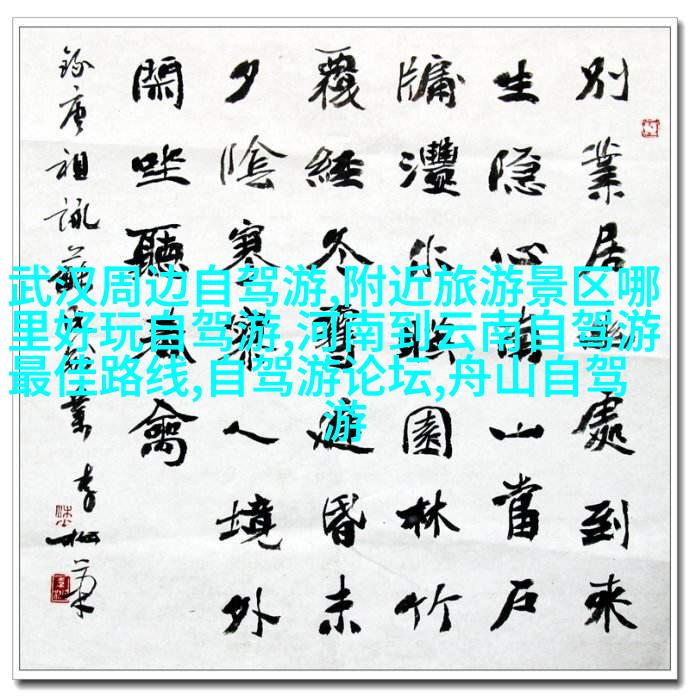 別業居幽處到來
生隐心南山當户
牖灃水映園林竹
覆經冬雪庭昏未
夕陰寥寥人境外
閑坐聽春禽
録唐祖詠蘇氏别業
武汉周边自驾游,附近旅游景区哪
里好玩自驾游,河南到云南自驾游
最佳路线,自驾游论坛,舟山自驾
游